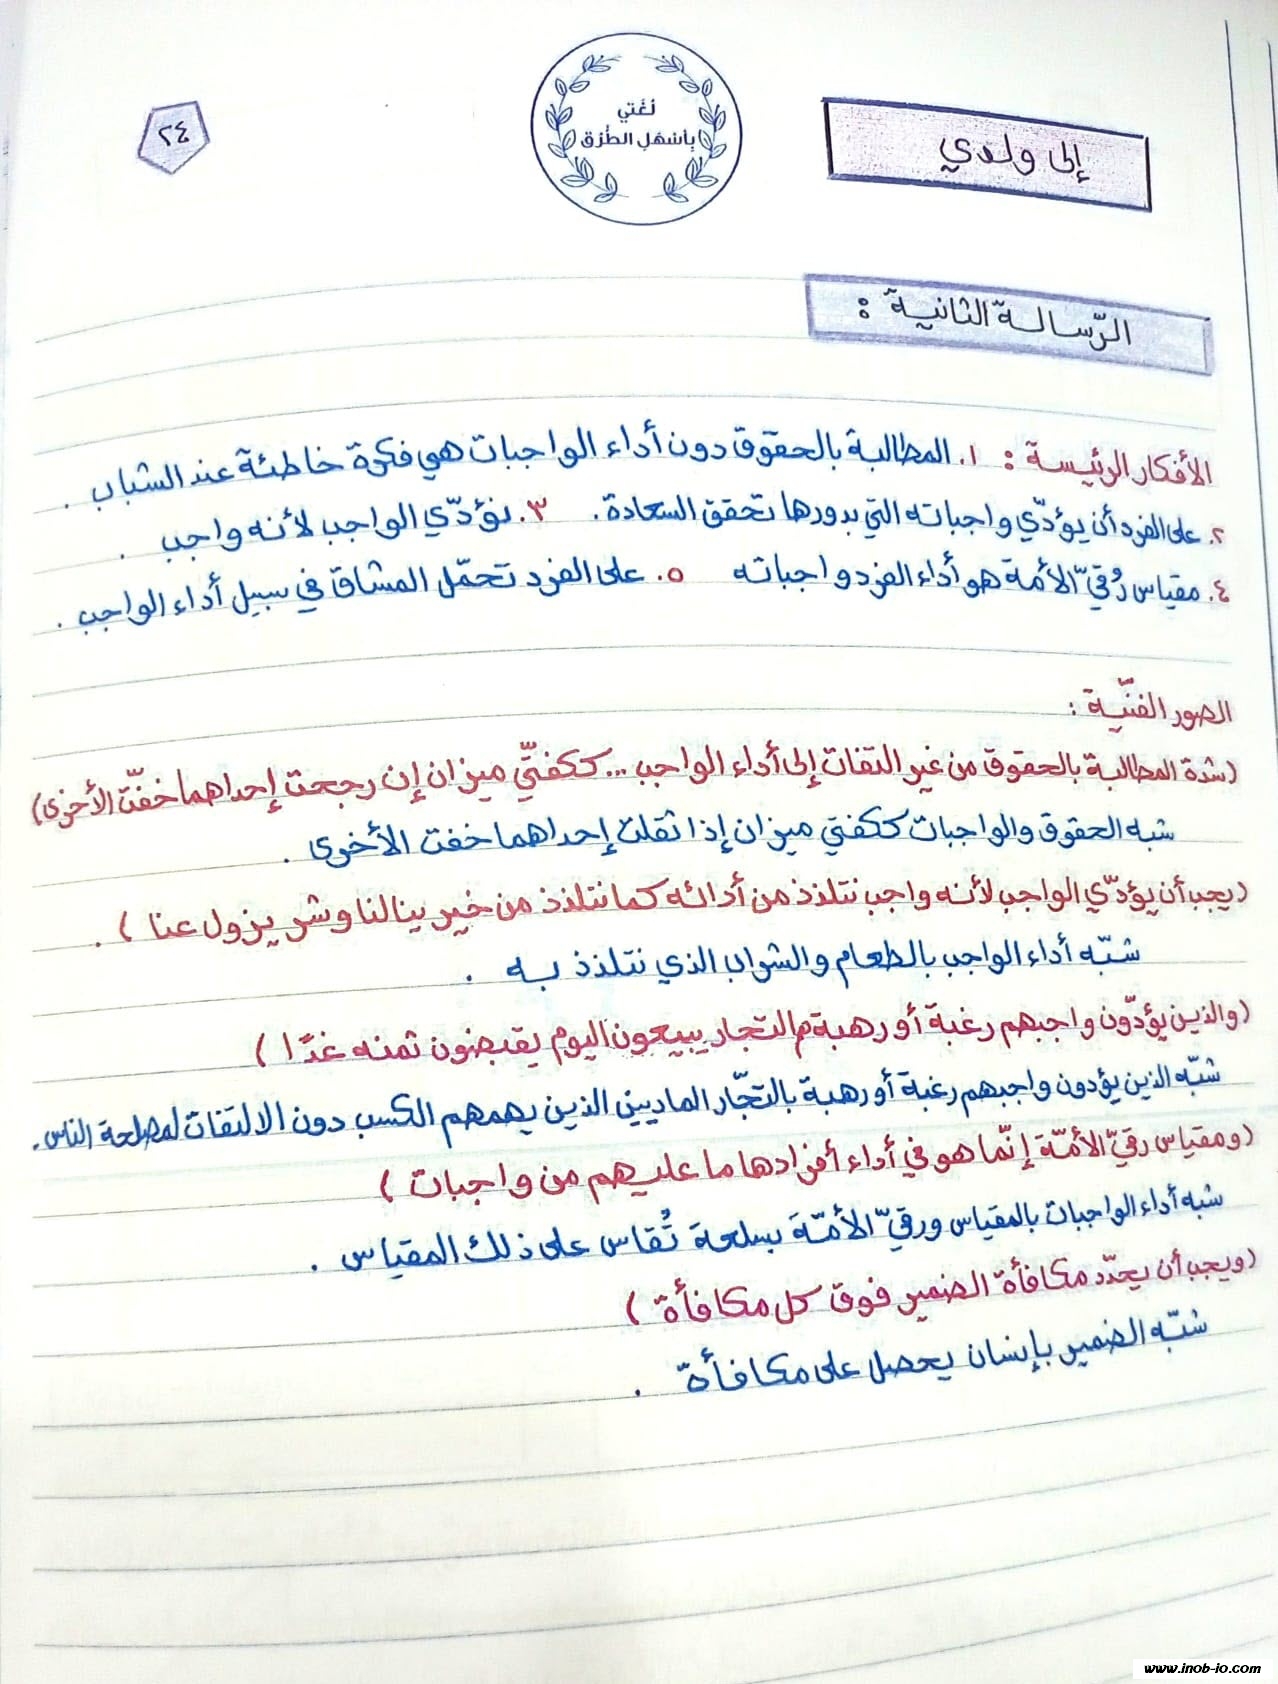 إلى ولدي
لُغَتي
بِأسْهَلِ الطُّرُق
٢٤
الرّسالة الثانية :
الأفكار الرئيسة : ١. المطالبة بالحقوق دون أداء الواجبات هي فكرة خاطئة عند الشباب .
٢. على الفرد أن يؤدّي واجباته التي بدورها تحقق السعادة. ٣. نؤدّي الواجب لأنه واجب .
٤. مقياس رُقيّ الأمة هو أداء الفرد واجباته ٥. على الفرد تحمّل المشاق في سبيل أداء الواجب .
الصور الفنّية :
(شدة المطالبة بالحقوق من غير التفات إلى أداء الواجب ... ككفتّي ميزان إن رجحت إحداهما خفّت الأخرى)
شبه الحقوق والواجبات ككفتي ميزان إذا ثقلت إحداهما خفت الأخرى .
(يجب أن يؤدّي الواجب لأنه واجب نتلذذ من أدائه كما نتلذذ من خير ينالنا وشر يزول عنا ) .
شبّه أداء الواجب بالطعام والشراب الذي نتلذذ به .
(والذين يؤدّون واجبهم رغبة أو رهبة هم التجار يبيعون اليوم يقبضون ثمنه غدًا )
شبّه الذين يؤدون واجبهم رغبة أو رهبة بالتجّار الماديين الذين يهمهم الكسب دون الالتفات لمصلحة الناس .
(ومقياس رقيّ الأمّة إنّما هو في أداء أفرادها ما عليهم من واجبات )
شبه أداء الواجبات بالمقياس ورقيّ الأمّة بسلعة تُقاس على ذلك المقياس .
(ويجب أن يحدّد مكافأة الضمير فوق كل مكافأة )
شبّه الضمير بإنسان يحصل على مكافأة .
www.inob-io.com